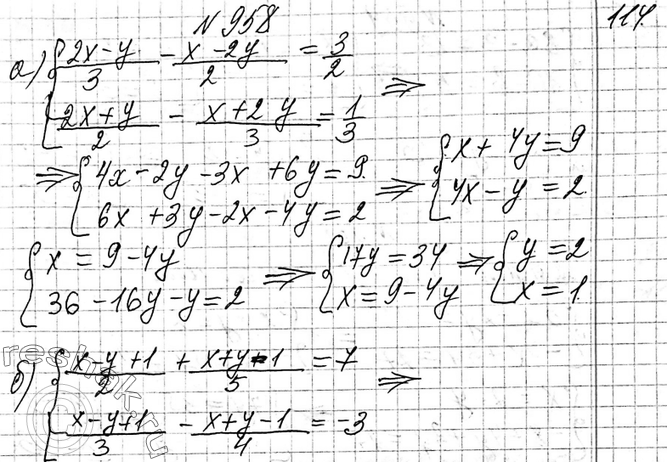 №958
114.
а) { (2x-y)/3 - (x-2y)/2 = 3/2
{ (2x+y)/2 - (x+2y)/3 = 1/3 ⇒
⇒ { 4x-2y-3x+6y=9 ⇒ { x+4y=9
{ 6x+3y-2x-4y=2 { 4x-y=2
{ x=9-4y ⇒ { 17y=34 ⇒ { y=2
{ 36-16y-y=2 { x=9-4y { x=1
б) { (x-y+1)/2 + (x+y-1)/5 = 7 ⇒
{ (x-y+1)/3 - (x+y-1)/4 = -3
reshak.ru